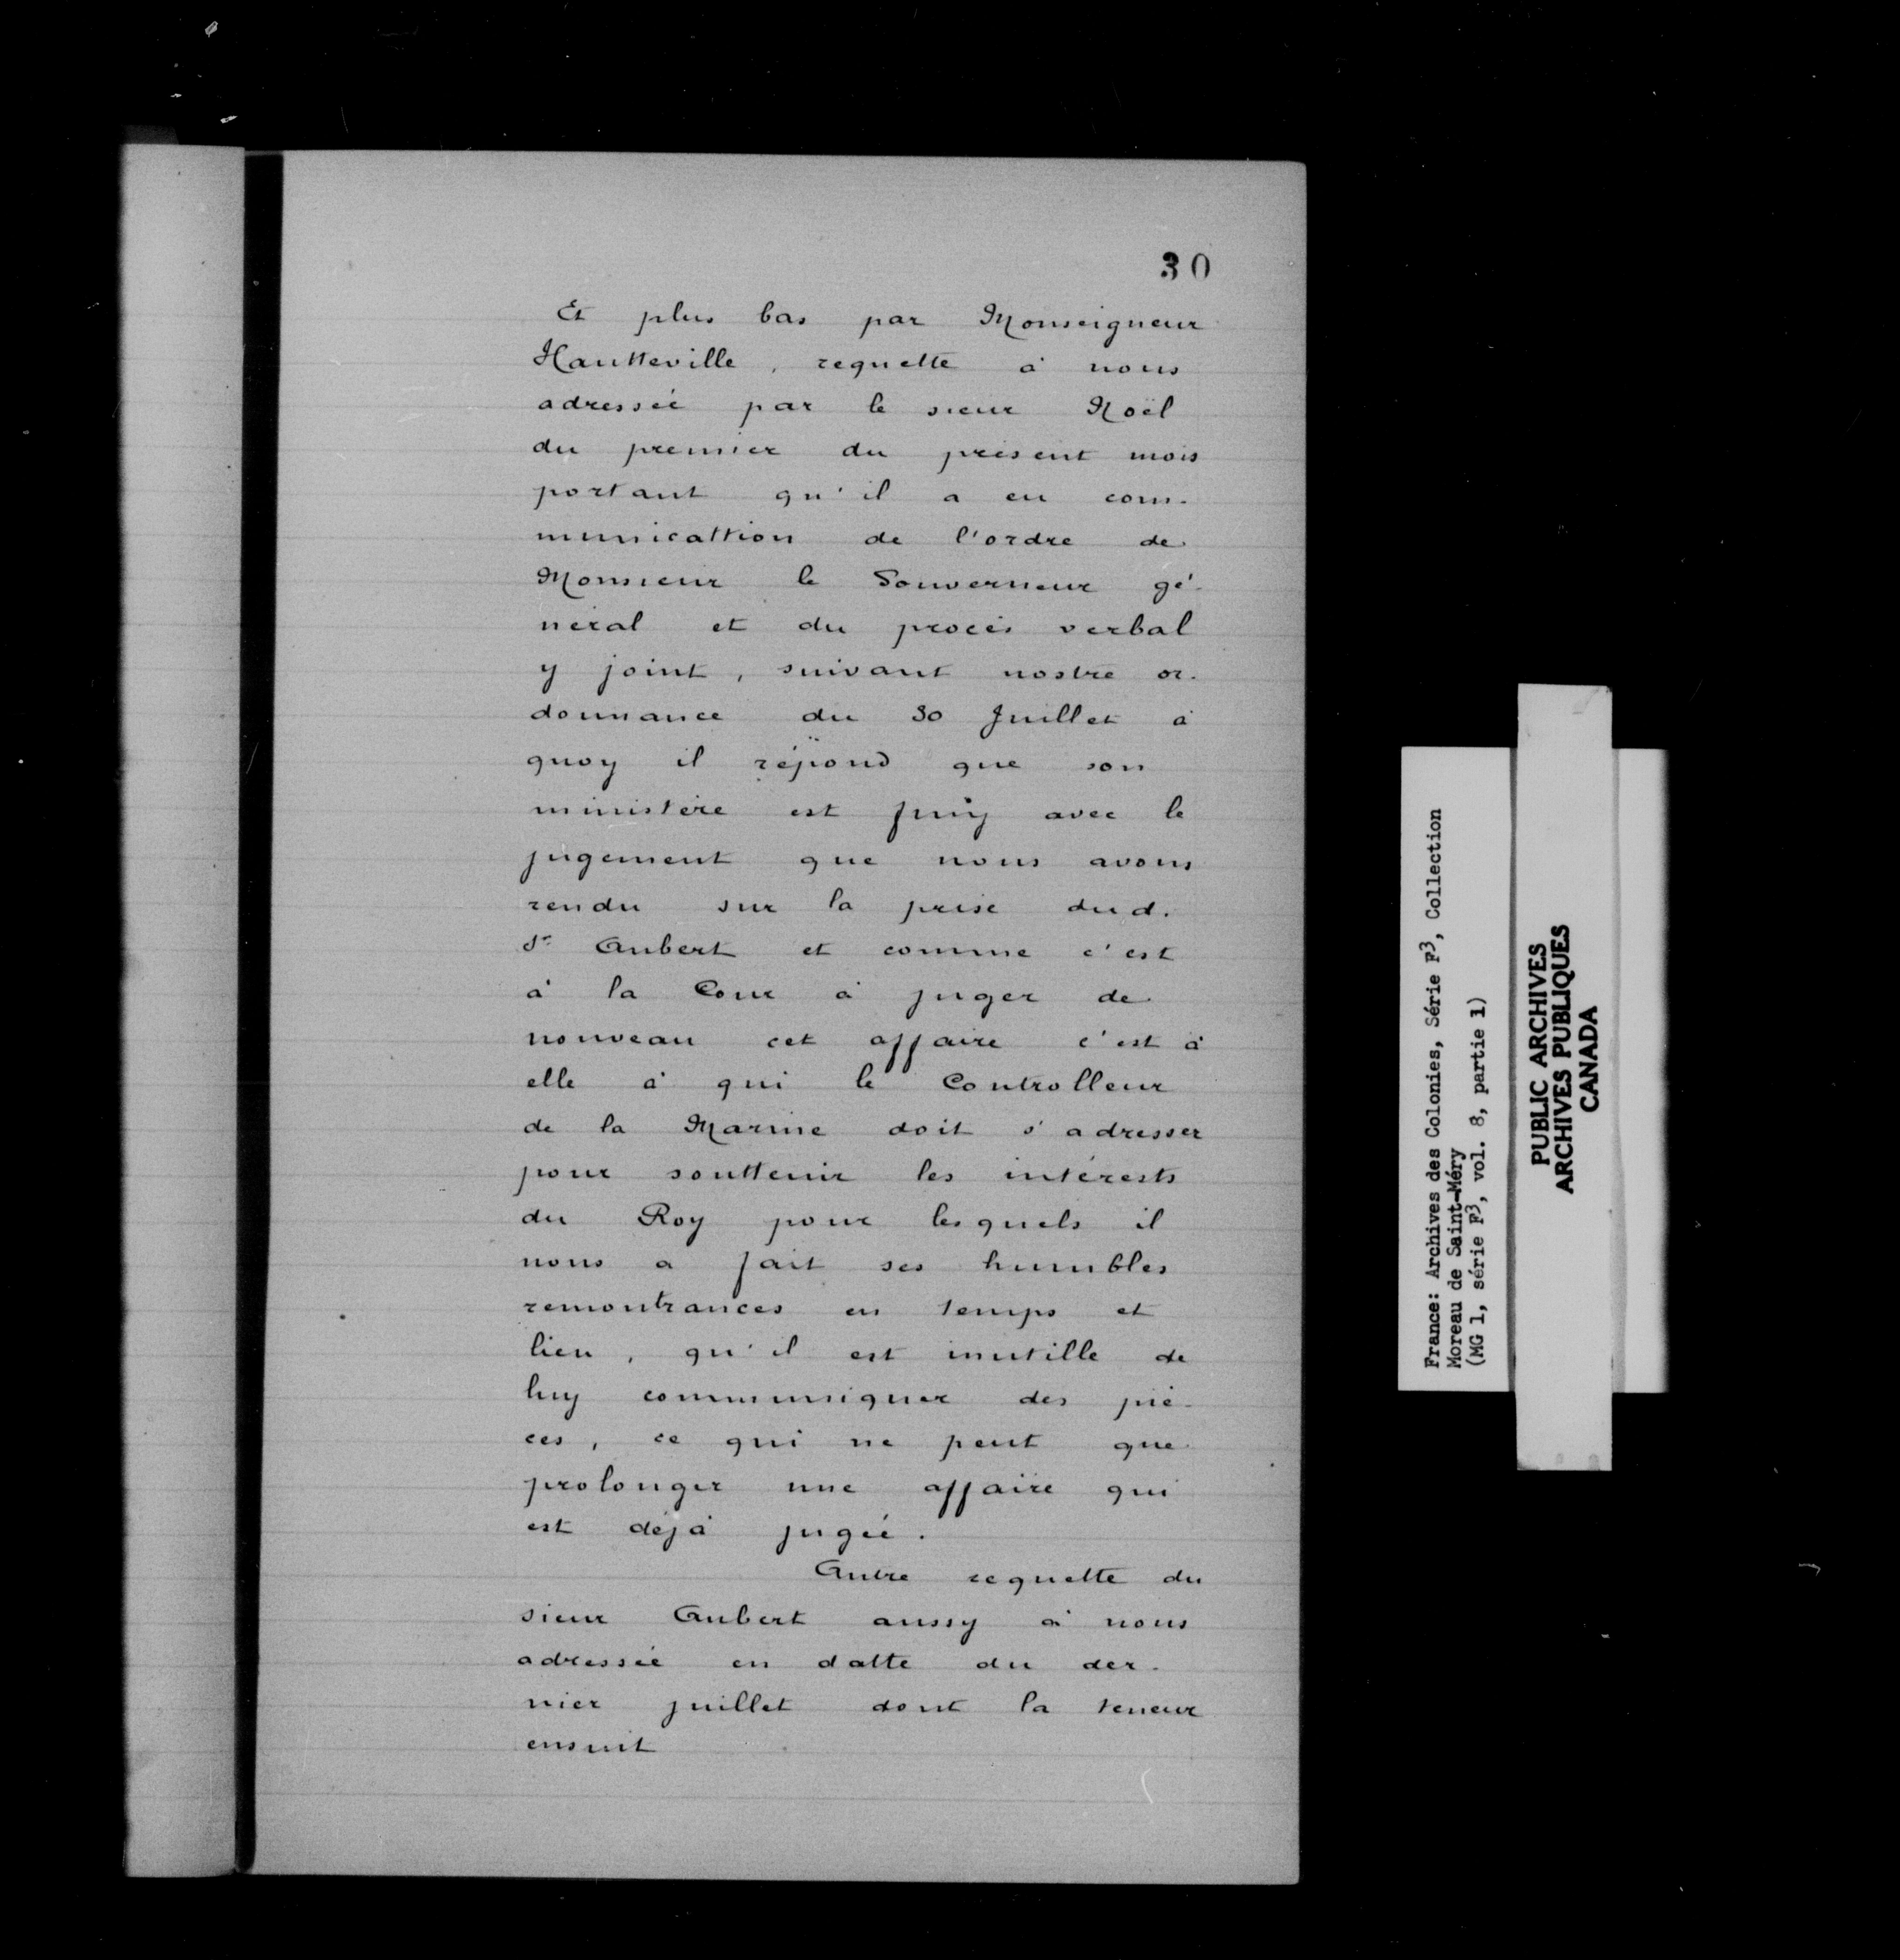 30
Et plus bas par Monseigneur
Hautteville, requette à nous
adressée par le sieur Noël
du premier du présent mois
portant qu'il a eu com-
municattion de l'ordre de
Monsieur le Gouverneur gé-
néral et du procès verbal
y joint, suivant nostre or-
donnance du 30 Juillet à
quoy il répond que son
ministère est finy avec le
jugement que nous avons
rendu sur la prise dud.
Sr Aubert et comme c'est
à la Cour à juger de
nouveau cet affaire c'est à
elle à qui le Controlleur
de la Marine doit s'adresser
pour souttenir les intérests
du Roy pour lesquels il
nous a fait ses humbles
remontrances en temps et
lieu, qu'il est inutille de
luy communiquer des piè-
ces, ce qui ne peut que
prolonger une affaire qui
est déjà jugée.
Autre requette du
sieur Aubert aussy à nous
adressée en datte du der-
nier juillet dont la teneur
ensuit
France: Archives des Colonies, Série F3, Collection
Moreau de Saint-Méry
(MG 1, série F3, vol. 8, partie 1)
PUBLIC ARCHIVES
ARCHIVES PUBLIQUES
CANADA